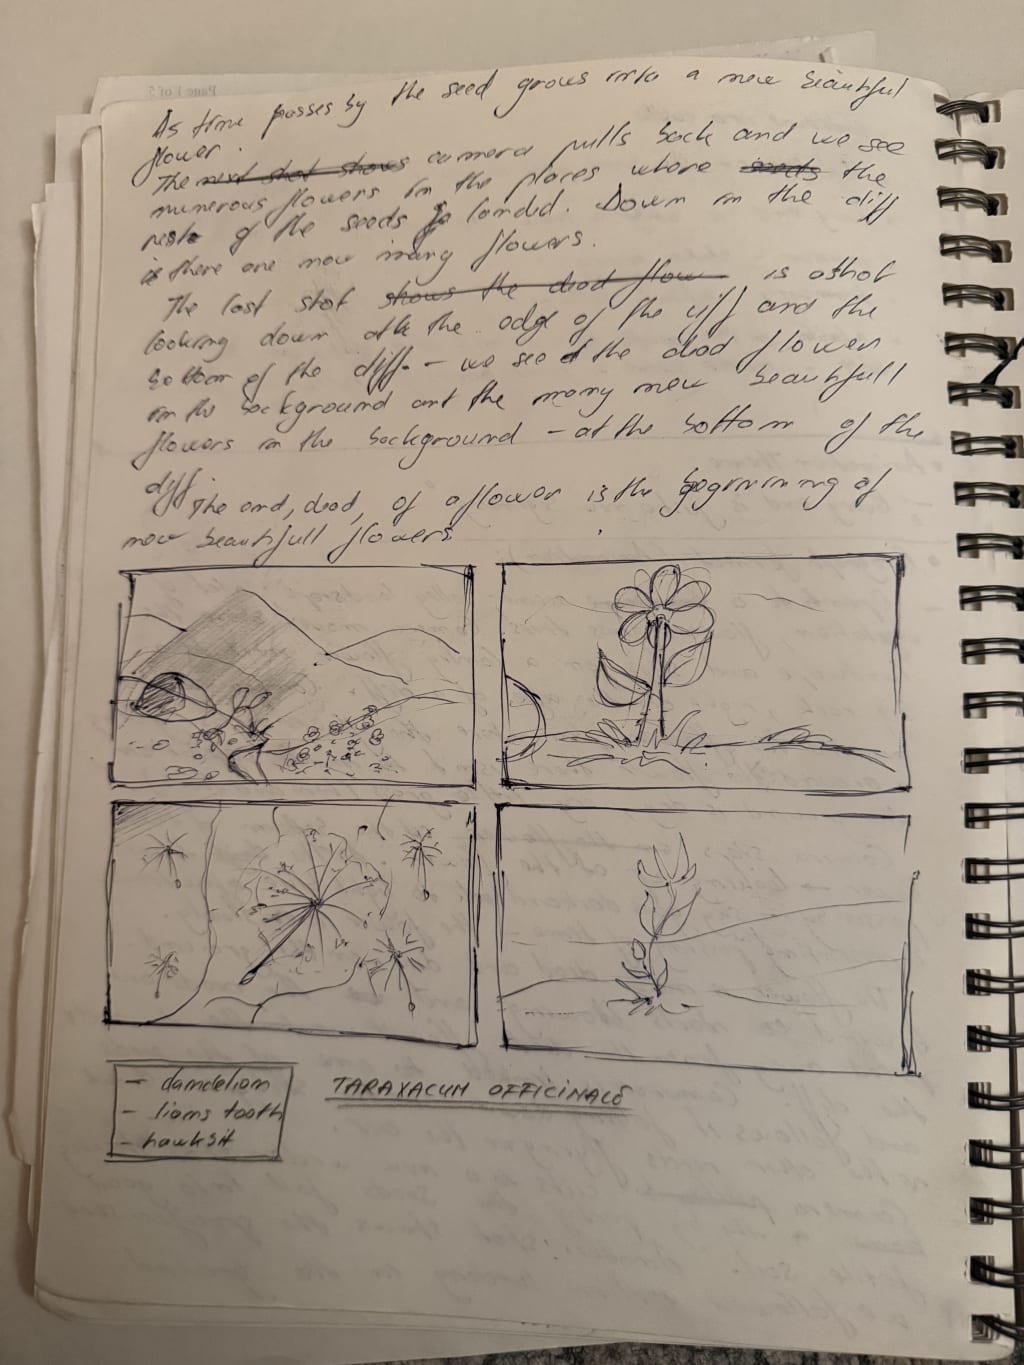 As time passes by the seed grows into a new beautiful
flower.
The next shot shows camera pulls back and we see
numerous flowers in the places where seeds the
rest of the seeds landed. Down in the cliff
there are now many flowers.
The last shot shows the dead flow is a shot
looking down at the edge of the cliff and the
bottom of the cliff. - we see the dead flower
in the background and the many new beautifull
flowers in the background - at the bottom of the
cliff.
The end, dead, of a flower is the beginning of
new beautifull flowers
- dandelion
- lions tooth
- hawksit
TARAXACUM OFFICINALE